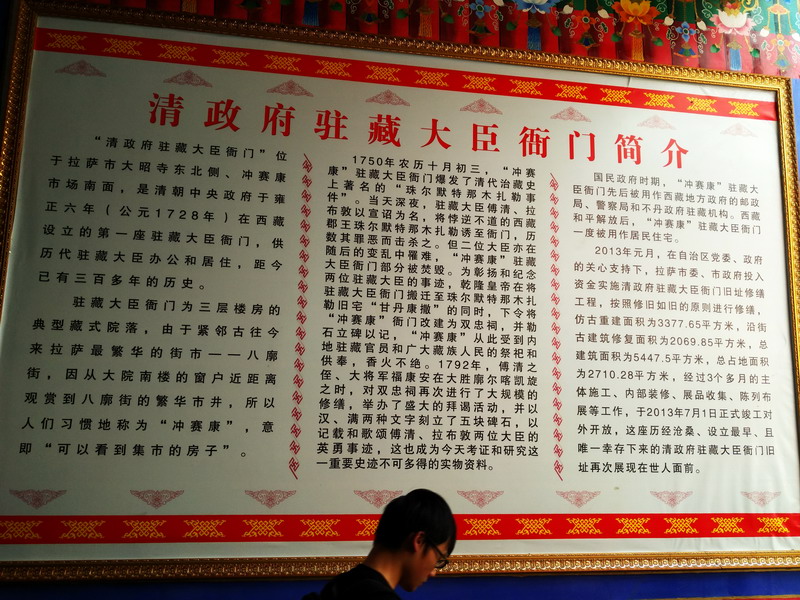 清政府驻藏大臣衙门简介
“清政府驻藏大臣衙门”位
于拉萨市大昭寺东北侧、冲赛康
市场南面，是清朝中央政府于雍
正六年（公元1728年）在西藏
设立的第一座驻藏大臣衙门，供
历代驻藏大臣办公和居住，距今
已有三百多年的历史。
驻藏大臣衙门为三层楼房的
典型藏式院落，由于紧邻古往今
来拉萨最繁华的街市——八廓
街，因从大院南楼的窗户近距离
观赏到八廓街的繁华市井，所以
人们习惯地称为“冲赛康”，意
即“可以看到集市的房子”。
1750年农历十月初三，“冲赛
康”驻藏大臣衙门爆发了清代治藏史
上著名的“珠尔默特那木扎勒事
件”。当天深夜，驻藏大臣傅清、拉
布敦以宣诏为名，将悖逆不道的西藏
郡王珠尔默特那木扎勒诱至衙门，历
数其罪恶而击杀之。但二位大臣亦在
随后的变乱中罹难，“冲赛康”驻藏
大臣衙门部分被焚毁。为彰扬和纪念
两位驻藏大臣的事迹，乾隆皇帝在将
驻藏大臣衙门搬迁至珠尔默特那木扎
勒旧宅“甘丹康撒”的同时，下令将
“冲赛康”衙门改建为双忠祠，并勒
石立碑以记，“冲赛康”从此受到内
地驻藏官员和广大藏族人民的祭祀和
供奉，香火不绝。1792年，傅清之
侄、大将军福康安在大胜廓尔喀凯旋
之时，对双忠祠再次进行了大规模的
修缮，举办了盛大的拜谒活动，并以
汉、满两种文字刻立了五块碑石，以
记载和歌颂傅清、拉布敦两位大臣的
英勇事迹，这也成为今天考证和研究这
一重要史迹不可多得的实物资料。
国民政府时期，“冲赛康”驻藏大
臣衙门先后被用作西藏地方政府的邮政
局、警察局和不丹政府驻藏机构。西藏
和平解放后，“冲赛康”驻藏大臣衙门
一度被用作居民住宅。
2013年元月，在自治区党委、政府
的关心支持下，拉萨市委、市政府投入
资金实施清政府驻藏大臣衙门旧址修缮
工程，按照修旧如旧的原则进行修缮，
仿古重建面积为3377.65平方米，沿街
古建筑修复面积为2069.85平方米，总
建筑面积为5447.5平方米，总占地面积
为2710.28平方米，经过3个多月的主
体施工、内部装修、展品收集、陈列布
展等工作，于2013年7月1日正式竣工对
外开放，这座历经沧桑、设立最早、且
唯一幸存下来的清政府驻藏大臣衙门旧
址再次展现在世人面前。